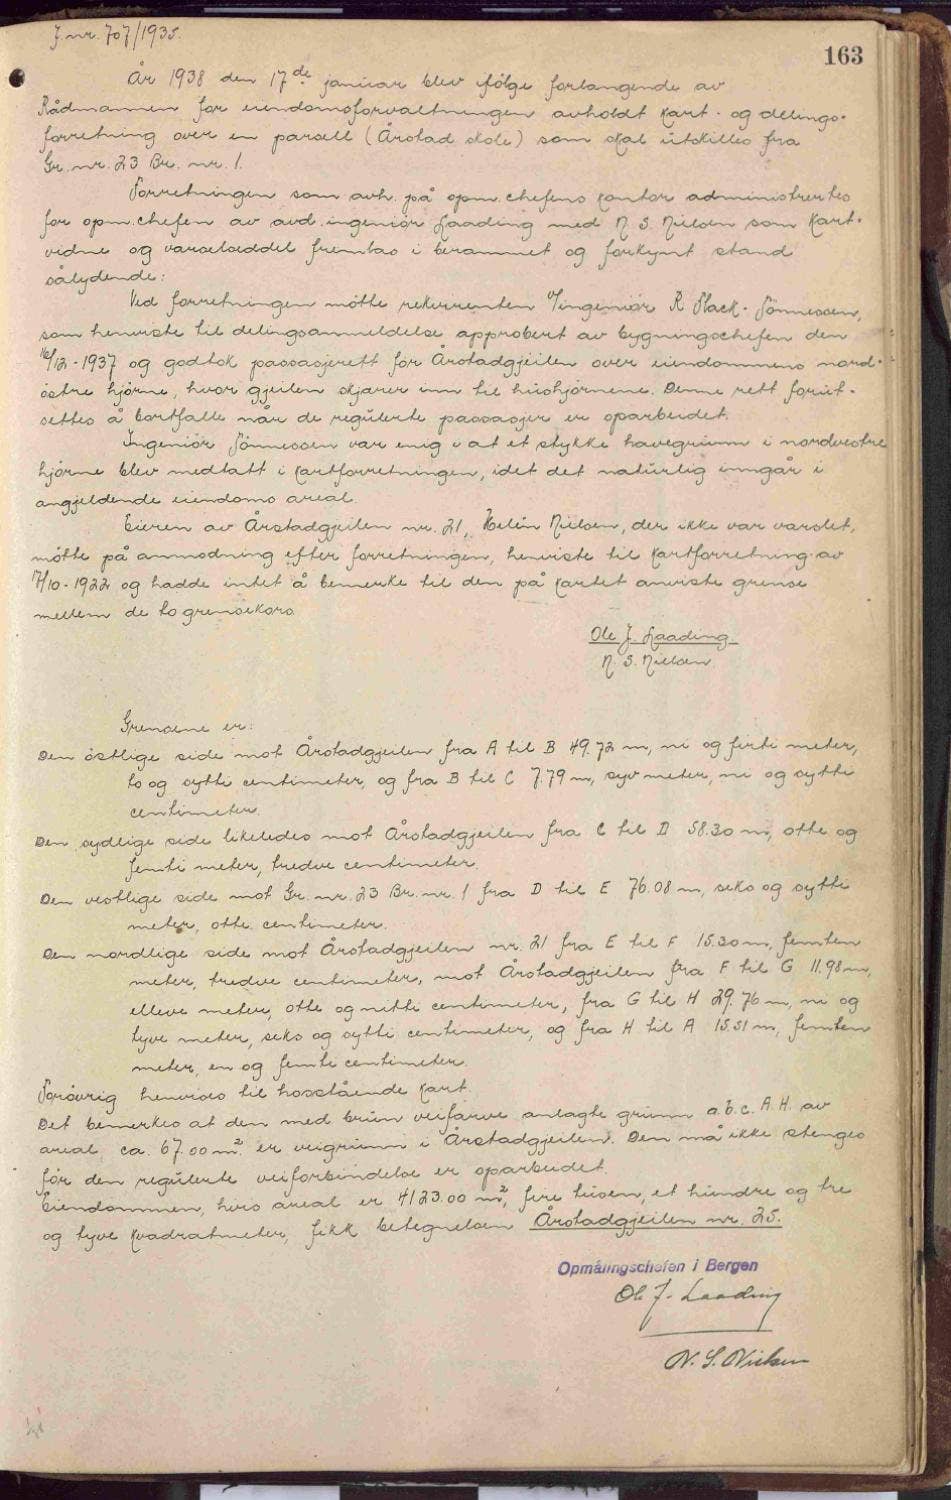 J.nr. 707/1935.
163
År 1938 den 17de januar blev ifølge forlangende av
Rådmannen for eiendomsforvaltningen avholdt kart- og delings-
forretning over en parsell (Årstad skole) som skal utskilles fra
Gr. nr. 23 Br. nr. 1.
Forretningen som avh. på opm. chefens kontor administrertes
for opm. chefen av avd. ingeniør Laading med N. S. Nielsen som kart-
vidne og varselseddel fremtas i berammet og forkynt stand
sålydende:
Ved forretningen møtte rekvirenten v/ingeniør R Flack-Tønnessen,
som henviste til delingsanmeldelse approbert av bygningschefen den
16/12-1937 og godtok passasjerett for Årstadgjeilen over eiendommens nord-
østre hjørne, hvor gjeilen skjærer inn til hushjørnene. Denne rett forut-
settes å bortfalle når de regulerte passasjer er oparbeidet.
Ingeniør Tønnessen var enig i at et stykke havegrunn i nordvestre
hjørne blev medtatt i kartforretningen, idet det naturlig inngår i
angjeldende eiendoms areal.
Eieren av Årstadgjeilen nr. 21, Helén Nielsen, der ikke var varslet,
møtte på anmodning efter forretningen, henviste til kartforretning av
7/10-1922 og hadde intet å bemerke til den på kartet anviste grense
mellem de to grensekors.
Ole J. Laading.
N. S. Nielsen
Grensene er:
Den østlige side mot Årstadgjeilen fra A til B 49.72 m, ni og førti meter,
to og sytti centimeter, og fra B til C 7.79 m, syv meter, ni og sytti
centimeter.
Den sydlige side likeledes mot Årstadgjeilen fra C til D 58.30 m, otte og
femti meter, tredve centimeter.
Den vestlige side mot Gr. nr. 23 Br. nr. 1 fra D til E 76.08 m, seks og sytti
meter, otte centimeter.
Den nordlige side mot Årstadgjeilen nr. 21 fra E til F 15.30 m, femten
meter, tredve centimeter, mot Årstadgjeilen fra F til G 11.98 m,
elleve meter, otte og nitti centimeter, fra G til H 29.76 m, ni og
tyve meter, seks og sytti centimeter, og fra H til A 15.51 m, femten
meter, en og femti centimeter.
Forøvrig henvises til hosstående kart.
Det bemerkes at den med brun veifarve anlagte grunn a.b.c.A.H. av
areal ca. 67.00 m². er veigrunn i Årstadgjeilen. Den må ikke stenges
før den regulerte veiforbindelse er oparbeidet.
Eiendommen, hvis areal er 4123.00 m², fire tusen, et hundre og tre
og tyve kvadratmeter, fikk betegnelsen Årstadgjeilen nr. 25.
Opmålingschefen i Bergen
Ole J. Laading
N. S. Nielsen